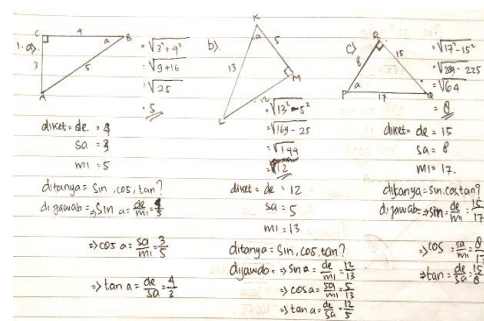 1. a).
C
4
B
a
3
5
A
= √3²+4²
= √9+16
= √25
= 5
diket = de = 4
sa = 3
mi = 5
ditanya = sin, cos, tan?
dijawab = ⇒ sin a = de/mi = 4/5
⇒ cos a = sa/mi = 3/5
⇒ tan a = de/sa = 4/3
b).
K
a
5
13
M
L
12
= √13²-5²
= √169-25
= √144
= 12
diket = de = 12
sa = 5
mi = 13
ditanya = sin, cos, tan?
dijawab = ⇒ sin a = de/mi = 12/13
⇒ cos a = sa/mi = 5/13
⇒ tan a = de/sa = 12/5
c)
R
8
15
a
17
= √17²-15²
= √289-225
= √64
= 8
diket = de = 15
sa = 8
mi = 17.
ditanya = sin. cos tan?
dijawab = ⇒ sin = de/mi = 15/17
⇒ cos = sa/mi = 8/17
⇒ tan = de/sa = 15/8